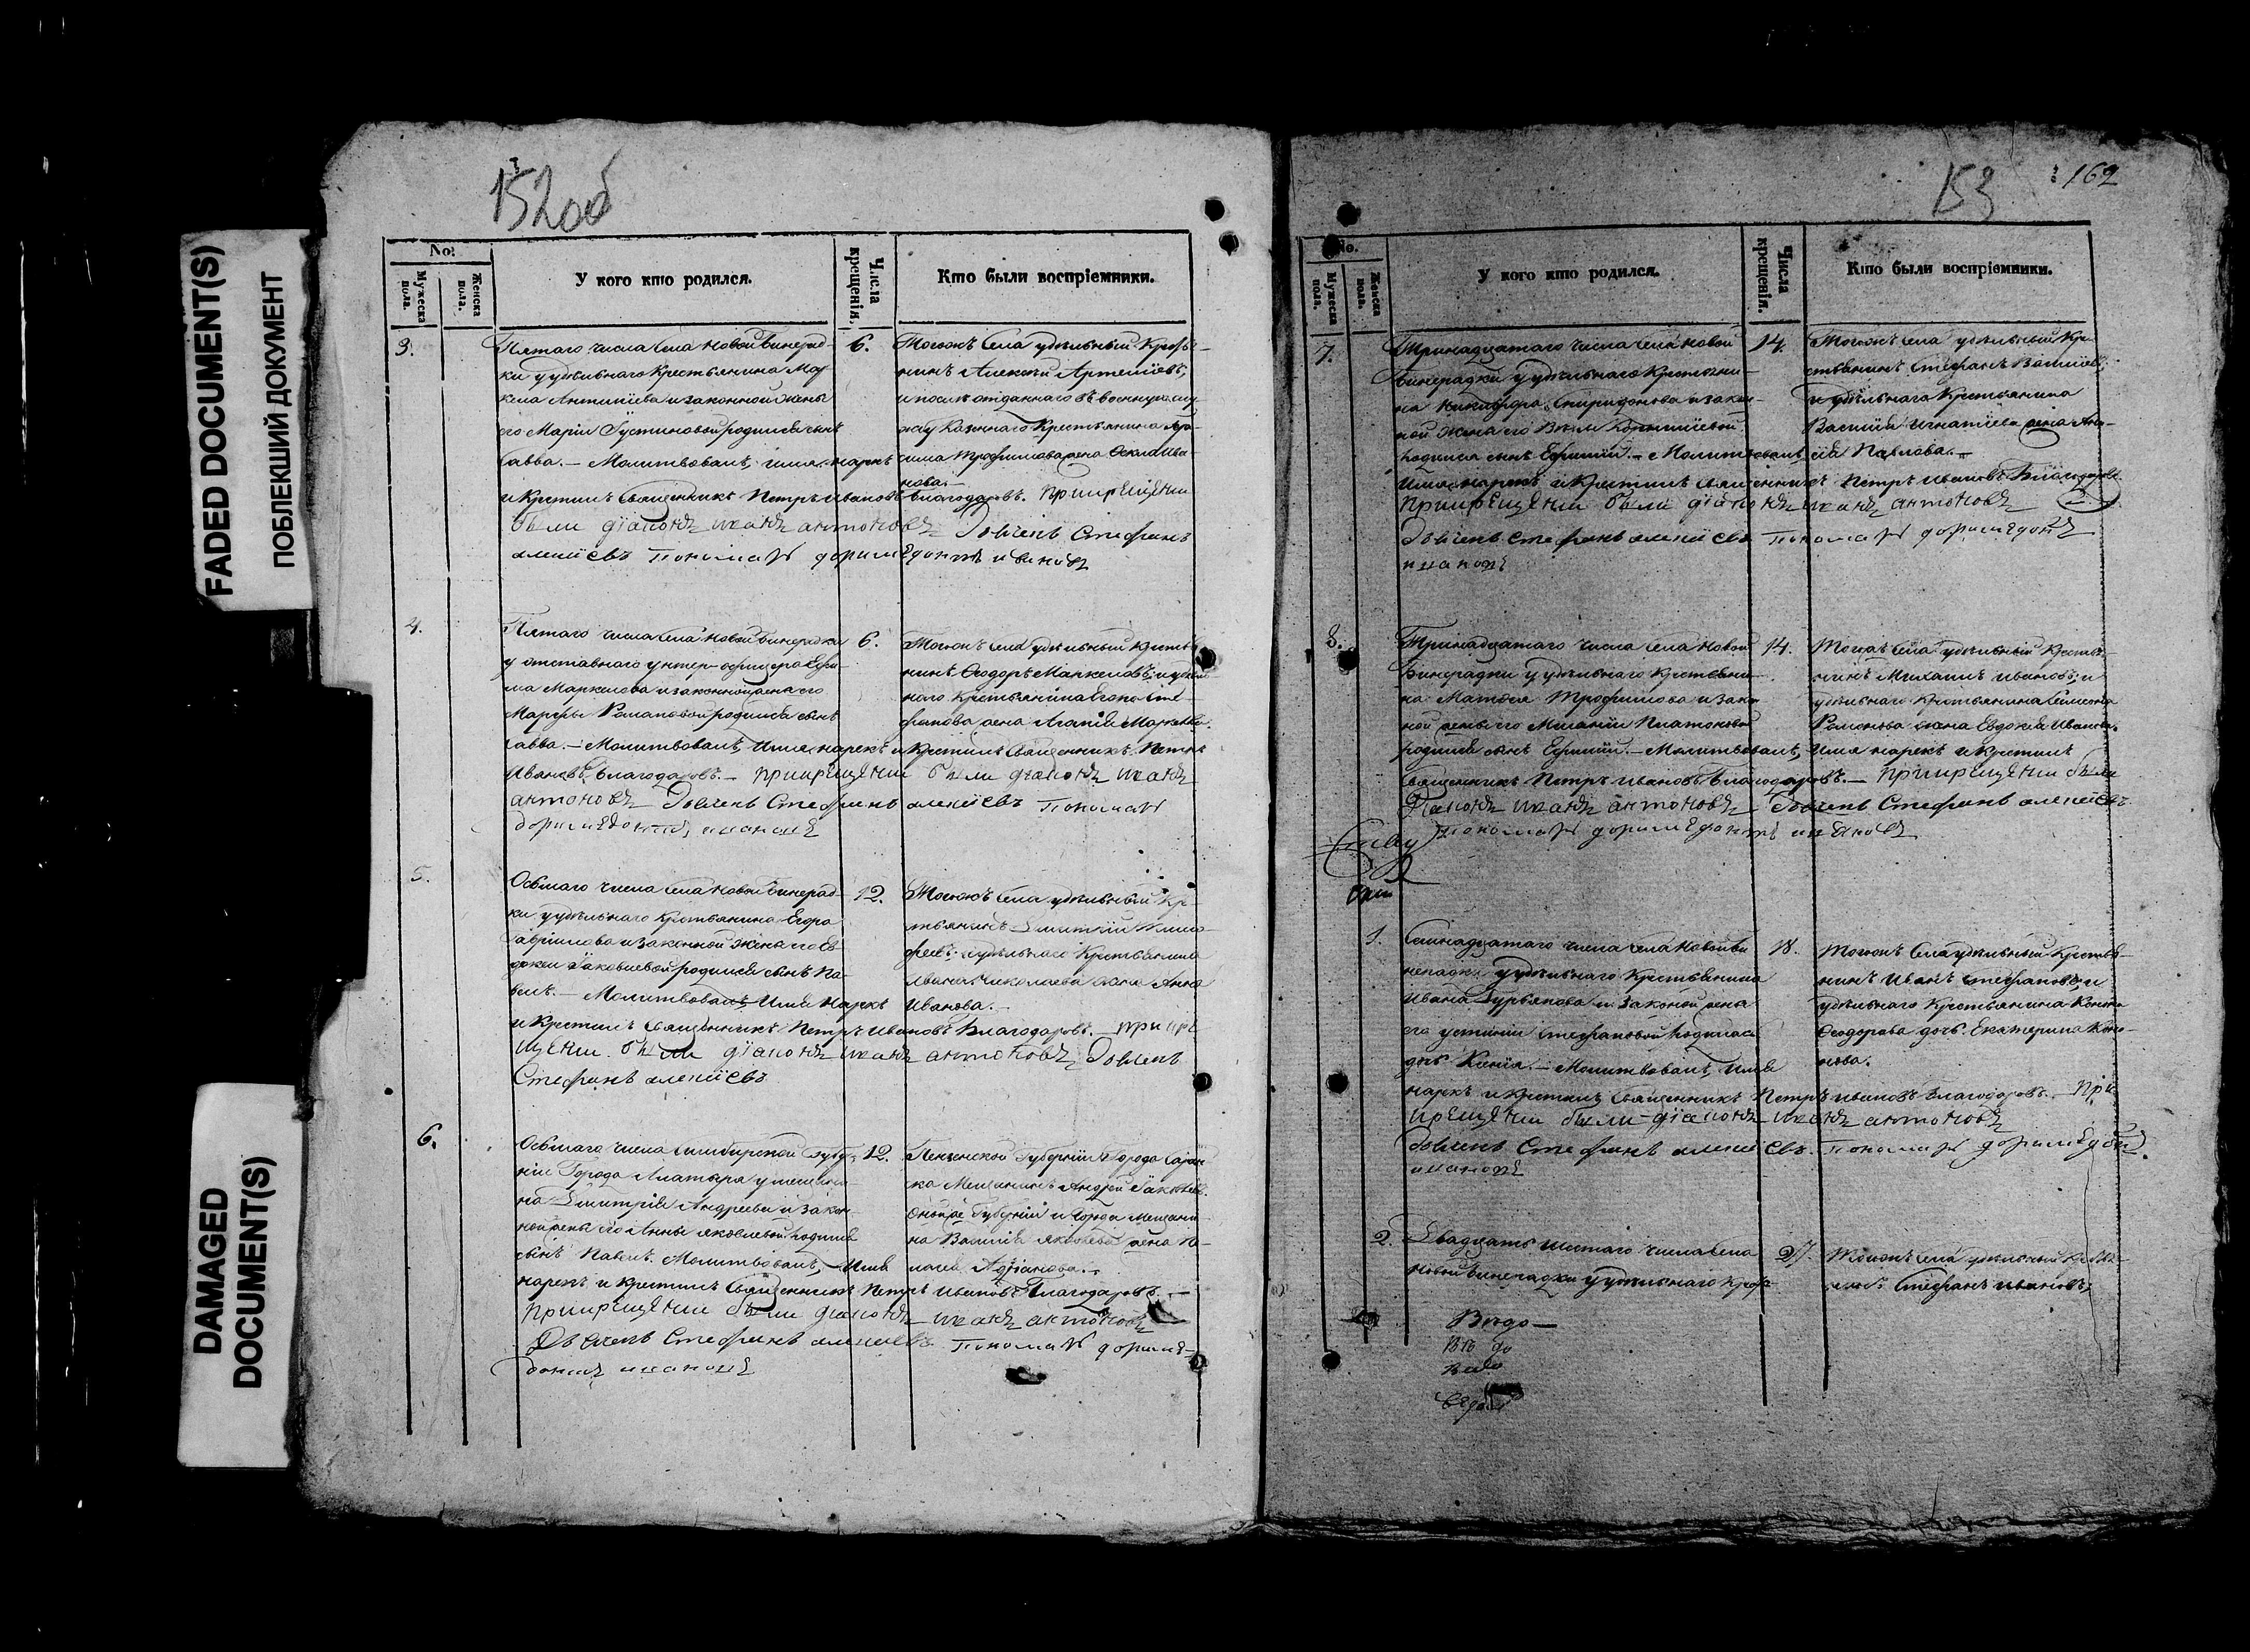 FADED DOCUMENT(S)
ПОБЛЕКШИЙ ДОКУМЕНТ
DAMAGED
DOCUMENT(S)
152об
No:
Мужеска пола.
Женска пола.
У кого кто родился.
Числа крещенія.
Кто были воспріемники.
3.
Пятаго числа села Новой Бинерад-
ки у удѣльнаго Крестьянина Мар
кела Антипіева и законной жены
его Маріи Густиновой родился сынъ
Савва. — Молитвовалъ, имя нарекъ
и Крестилъ Священникъ Петръ Ивановъ Благодаровъ. При крещении
были діаконъ иванъ антоновъ Дьячекъ Стефанъ
алексіевъ пономарь доримедонтъ ивановъ
6.
Тогожъ села удѣльный Кресть-
нинъ Алексѣй Артеміевъ,
и послѣ отданнаго въ военную слу
жбу Казеннаго Крестьянина
сима Трофимова жена Фекла Ива
нова. —
4.
Пятаго числа села Новой Бинерадки
у отставнаго унтер-офицера Ефи-
ма Маркелова и законной жены его
Марфы Романовой родился сынъ
Савва. — Молитвовалъ, Имя нарекъ и Крестилъ Священникъ Петръ
Ивановъ Благодаровъ. — При крещении были діаконъ иванъ
антоновъ Дьячекъ Стефанъ алексіевъ пономарь
доримедонтъ ивановъ
6.
Тогожъ села удѣльный Крестья
нинъ Ѳеодоръ Маркеловъ; и удѣль
наго Крестьянина Егора Сте
фанова жена Агапія Маркело
5.
Осьмаго числа села Новой Бинерад-
ки у удѣльнаго Крестьянина Егора
Гавріилова и законной жены его Ев-
докеи Іаковлевой родился сынъ Па-
велъ. — Молитвовалъ Имя Нарекъ
и Крестилъ Священникъ Петръ Ивановъ Благодаровъ. — При кре
щении были діаконъ иванъ антоновъ Дьячекъ
Стефанъ алексіевъ
12.
Тогожъ села удѣльный Кре-
стьянинъ Димитрій Тимо
феевъ; и удѣльнаго Крестьянина
Ивана Николаева жена Анна
Иванова. —
6.
Осьмаго числа Симбирской Губер
ніи Города Алатыря у мещани
на Димитрія Андреева и закон-
ной жены его Анны Яковлевой родился
сынъ Павелъ. Молитвовалъ, — Имя
нарекъ и Крестилъ Священникъ Петръ Ивановъ Благодаровъ —
При крещении были діаконъ иванъ антоновъ
Дьячекъ Стефанъ алексіевъ пономарь дориме-
донтъ ивановъ
12.
Пензенской Губерніи Города Саран
ска Мещанинъ Андрей Іаковлев.
Оной же Губерніи и Города Мещани
на Василія Яковлева жена Пе-
лагея Адріанова. —
153
162
No.
Мужеска пола.
Женска пола.
У кого кто родился.
Числа крещенія.
Кто были воспріемники.
7.
Тринадцатаго числа села Новой
Бинерадки у удѣльнаго Крестьяни-
на Никифора Спиридонова и закон-
ной жены его
родился сынъ Ефимій. — Молитвовалъ,
Имя нарекъ и Крестилъ Священникъ Петръ Ивановъ Благодаровъ
При крещении были діаконъ иванъ антоновъ
Дьячекъ Стефанъ алексіевъ пономарь доримедонтъ
ивановъ
14.
Тогожъ села удѣльный Кре
стьянинъ Стефанъ Василіевъ;
и удѣльнаго Крестьянина
Василія Игнатіева жена Ана-
сія Павлова. —
8.
Тринадцатаго числа села Новой
Бинерадки у удѣльнаго Крестьяни
на Матвея Трофимова и закон
ной жены его Меланіи Платоновой
родился сынъ Ефимій. — Молитвовалъ, Имя нарекъ и Крестилъ
Священникъ Петръ Ивановъ Благодаровъ. — При крещении были
Діаконъ иванъ антоновъ Дьячекъ Стефанъ алексіевъ
пономарь доримедонтъ ивановъ
14.
Тогожъ села удѣльный Крестья-
нинъ Михаилъ Ивановъ; и
удѣльнаго Крестьянина Симеона
Романова жена Евдокія Иванова.
1.
Семнадцатаго числа села Новой Би
нерадки у удѣльнаго Крестьянина
Ивана Гурьянова и законой жены
его Устиніи Стефановой родилась
дочь Ксенія. — Молитвовалъ, Имя
нарекъ и Крестилъ Священникъ Петръ Ивановъ Благодаровъ. — При
крещении были — діаконъ иванъ антоновъ
Дьячекъ Стефанъ алексіевъ. пономарь доримедонтъ
ивановъ
18.
Тогожъ села удѣльный Крестья
нинъ Иванъ Стефановъ; и
удѣльнаго Крестьянина Конона
Ѳеодорова дочь Екатерина Коно-
нова.
2.
Двадцать шестаго числа села
Новой Бинерадки у удѣльнаго Крест
27.
Тогожъ села удѣльный Кресть
янинъ Стефанъ Ивановъ;